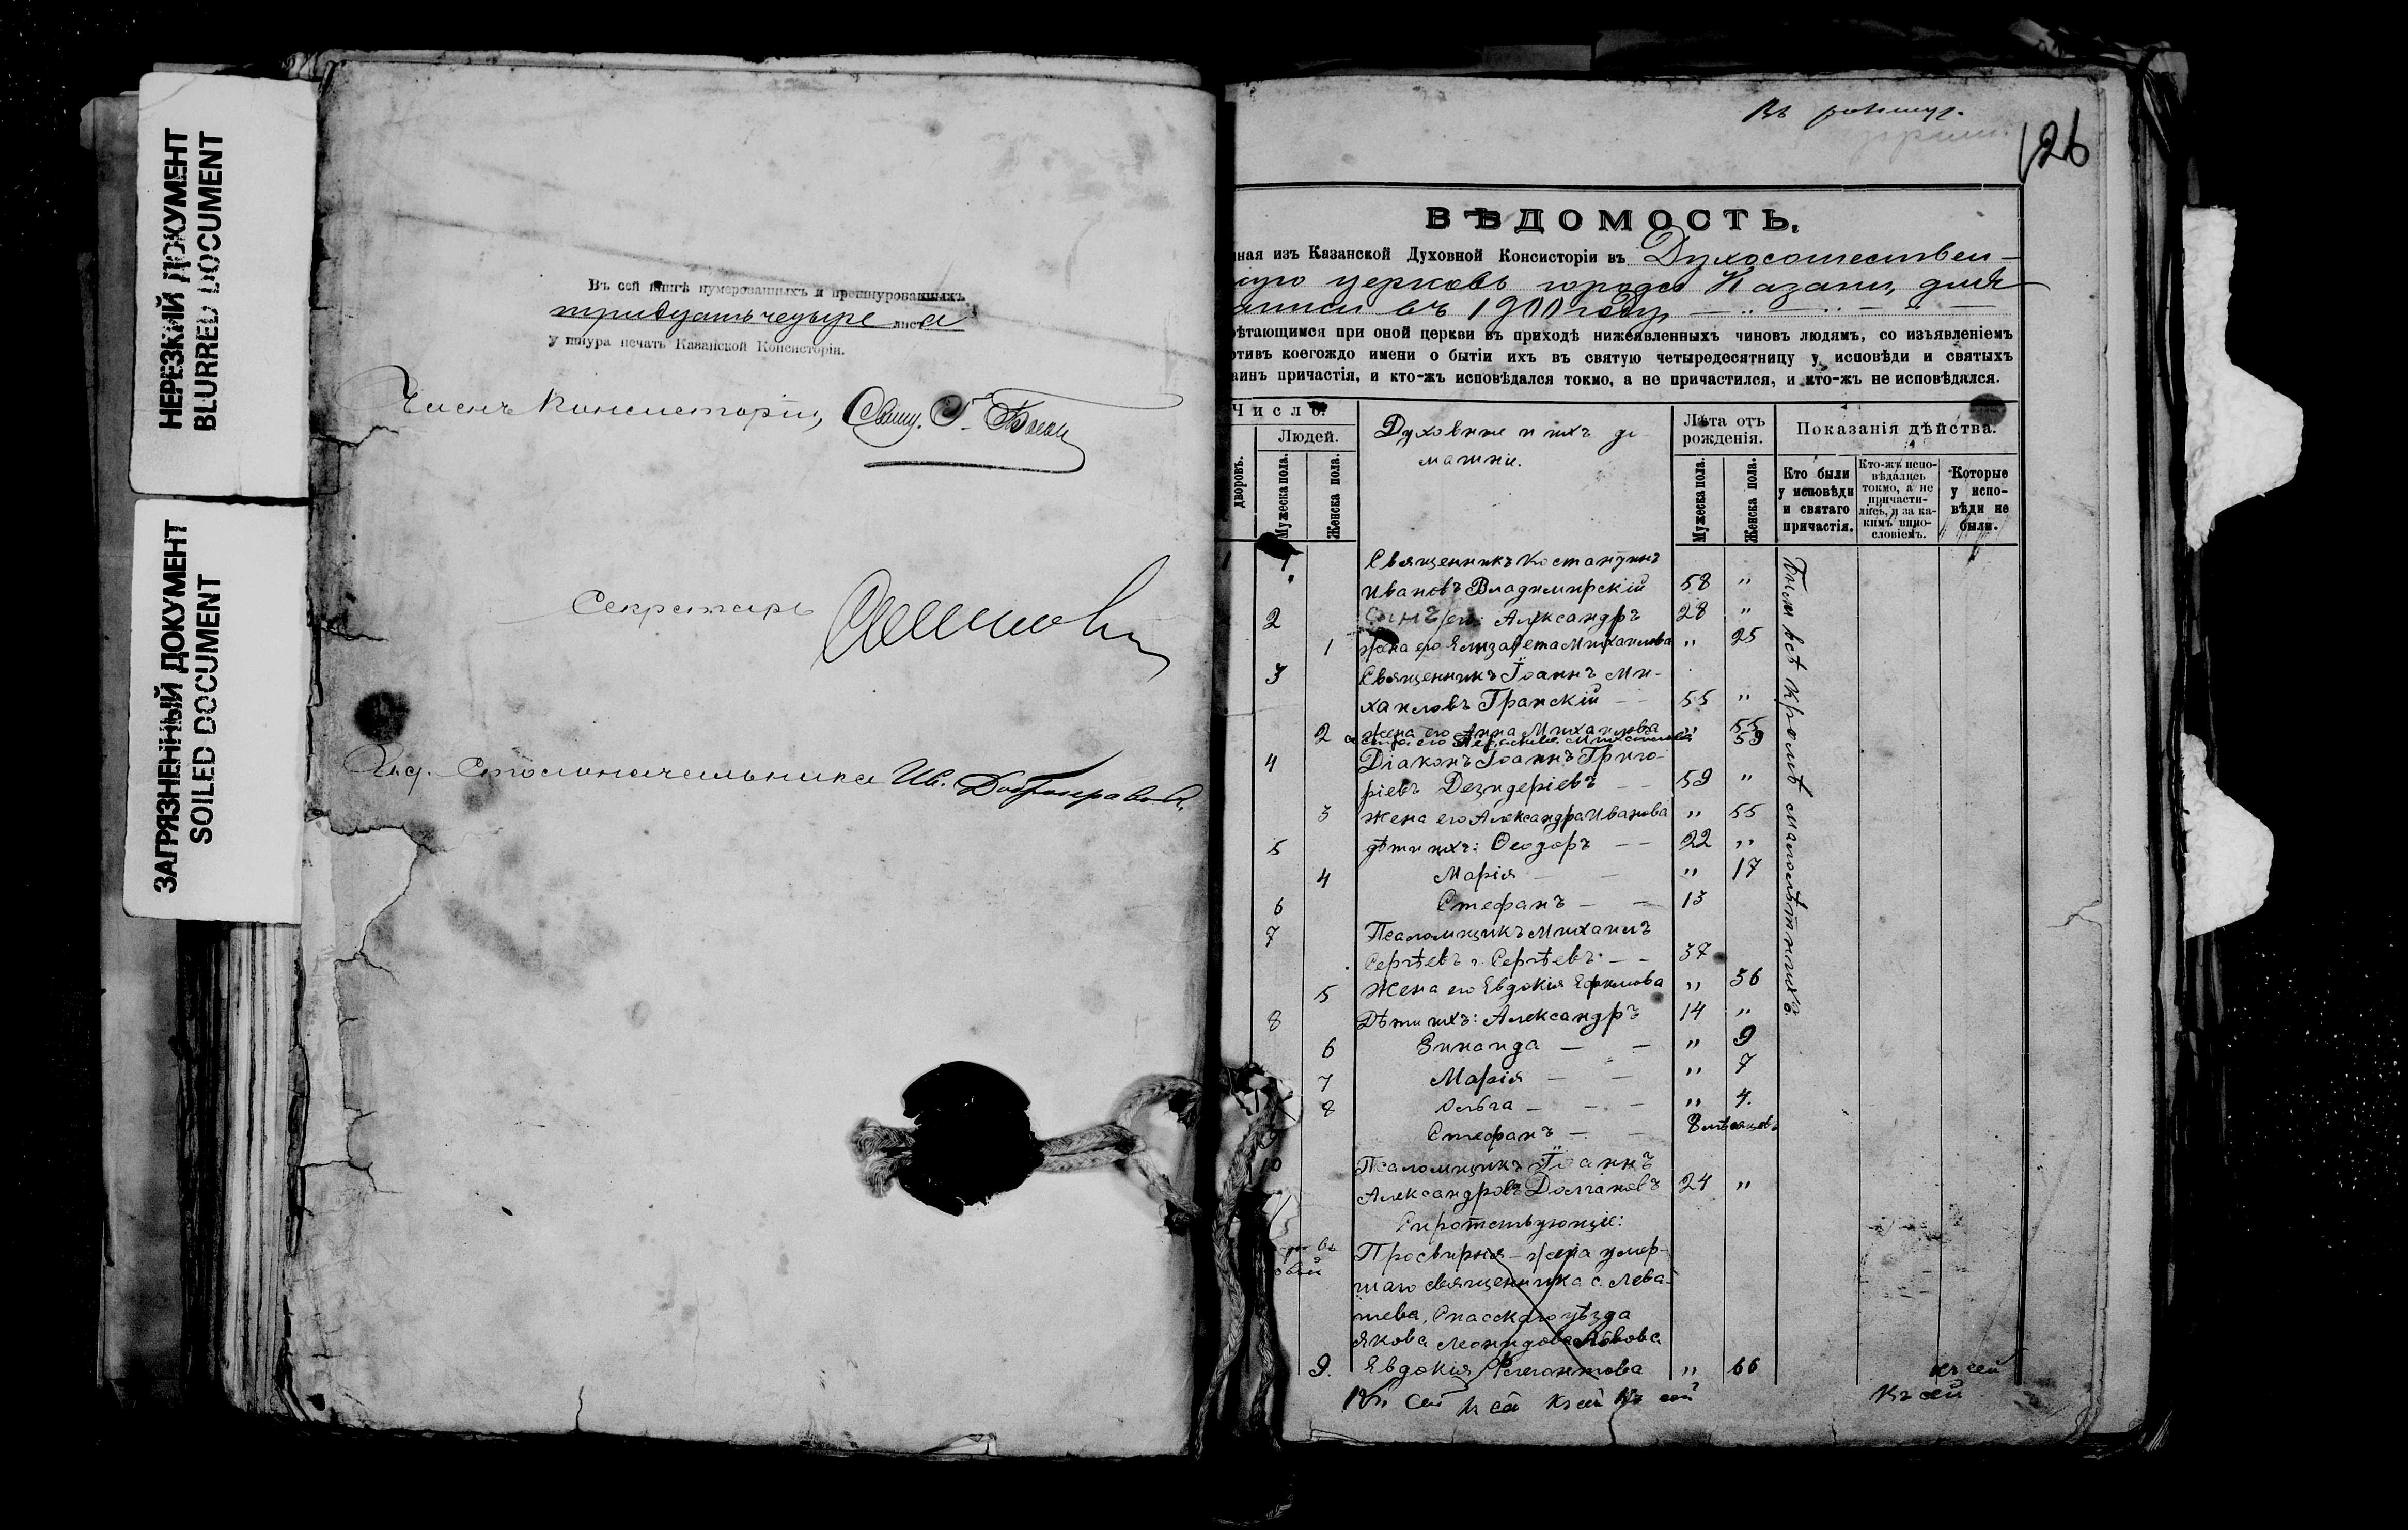 НЕРЕЗКИЙ ДОКУМЕНТ
BLURRED DOCUMENT
ЗАГРЯЗНЕННЫЙ ДОКУМЕНТ
SOILED DOCUMENT
Въ сей книгѣ нумерованныхъ и прошнурованныхъ
тридцать четыре листа
у шнура печать Казанской Консисторіи.
Членъ Консисторіи, Свящ.
Секретарь
Столоначальника Ив. Добронравовъ
126
ВѢДОМОСТЬ,
ная изъ Казанской Духовной Консисторіи въ Духосошествен-
ую церковь города Казани, для
записи въ 1900 году
ѣтающимся при оной церкви въ приходѣ нижеявленныхъ чиновъ людямъ, со изъявленіемъ
отивъ коегождо имени о бытіи ихъ въ святую четыредесятницу у исповѣди и святыхъ
аинъ причастія, и кто-жъ исповѣдался токмо, а не причастился, и кто-жъ не исповѣдался.
Число.
Людей.
дворовъ.
Мужеска пола.
Женска пола.
Духовные и ихъ до-
машніе.
Лѣта отъ
рожденія.
Мужеска пола.
Женска пола.
Показанія дѣйства.
Кто были
у исповѣди
и святаго
причастія.
Кто-жъ испо-
вѣдались
токмо, а не
причасти-
лись, и за ка-
кимъ вино-
словіемъ.
Которые
у испо-
вѣди не
были.
Были всѣ кромѣ малолѣтнихъ.
1 Священникъ Константинъ
Ивановъ Владимирскій 58 "
2 Сынъ его: Александръ 28 "
1 Жена его Елизавета Михаилова " 25
3 Священникъ Іоаннъ Ми-
хаиловъ Гранскій 55 "
2 Жена его Анна Михаилова " 55
59
4 Діаконъ Іоаннъ Григо-
ріевъ Дезидеріевъ 59 "
3 Жена его Александра Иванова " 55
5 дѣти ихъ: Ѳеодоръ 22 "
4 Марія " 17
6 Стефанъ 13
7 Псаломщикъ Михаилъ
Сергѣевъ Сергѣевъ 37
5 Жена его Евдокія Ефимова " 36
8 Дѣти ихъ: Александръ 14 "
6 Зинаида " 9
7 Марія " 7
8 Ольга " 4.
Стефанъ 8 мѣсяцев.
10 Псаломщикъ Іоаннъ
Александровъ Долгановъ 24 "
Сиротствующіе:
Просвирня - жена умер-
шаго священника с. Лева-
шева, Спасскаго уѣзда
Якова Леонидова Львова
9. Евдокія " 66
къ сей
къ сей